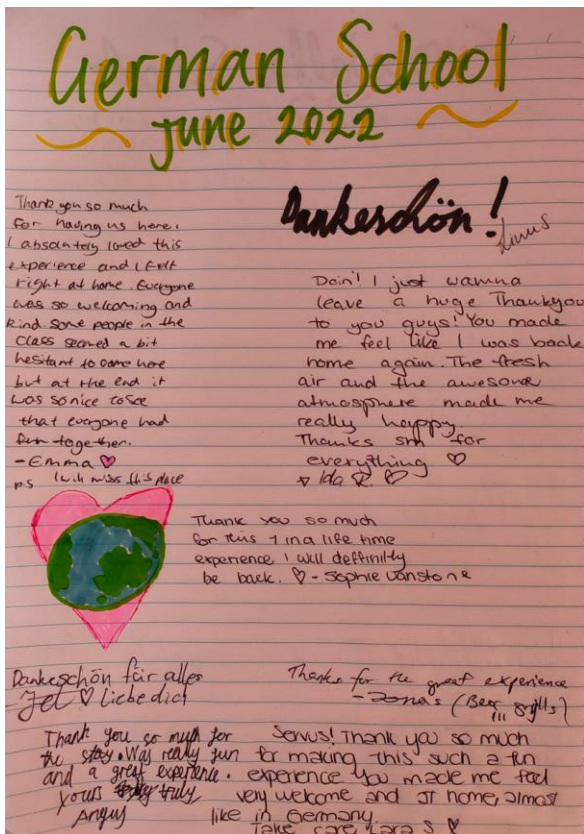 German School
June 2022
Thank you so much
for having us here.
I absolutely loved this
experience and I felt
right at home. Everyone
was so welcoming and
kind some people in the
class seemed a bit
hesitant to come here
but at the end it
was so nice to see
that everyone had
fun together.
-Emma ♡
ps I will miss this place
Dankeschön!
Linus
Doin'! I just wanna
leave a huge Thankyou
to you guys! You made
me feel like I was back
home again. The fresh
air and the awesome
atmosphere made me
really happy.
Thanks sm for
everything ♡
Ida R. ♡
Thank you so much
for this 1 in a life time
experience. I will deffinitly
be back. ♡ - Sophie vanstone
Dankeschön für alles
-Jet ♡ Liebe dich
Thanks for the great experience
- Jonas (Bear Grylls)
Thank you so much for
the stay. Was really fun
and a great experience.
yours truly
Angus
Servus! Thank you so much
for making this such a fun
experience you made me feel
very welcome and at home, almost
like in Germany
Take care, Lara S ♡